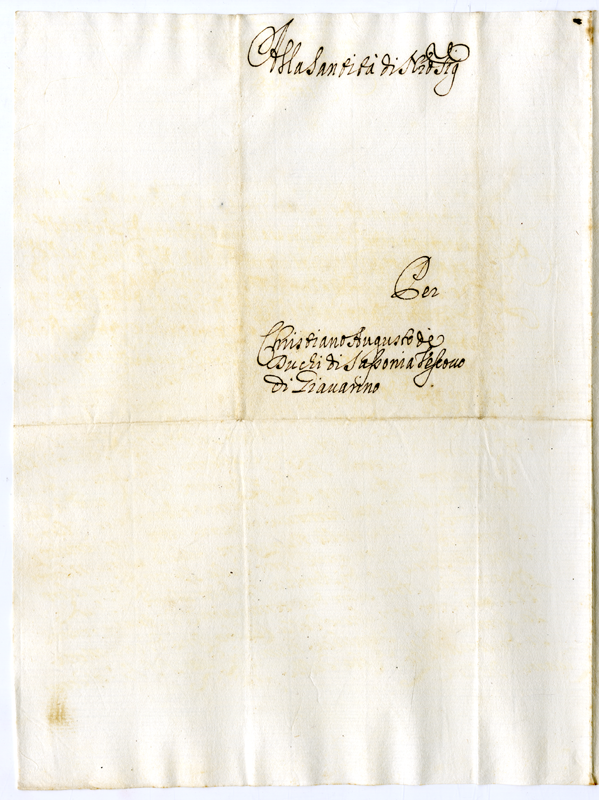 Alla Santità di Nrō Sig
Per
Christiano Augusto de
Duchi di Sassonia Vescovo
di Giavarino